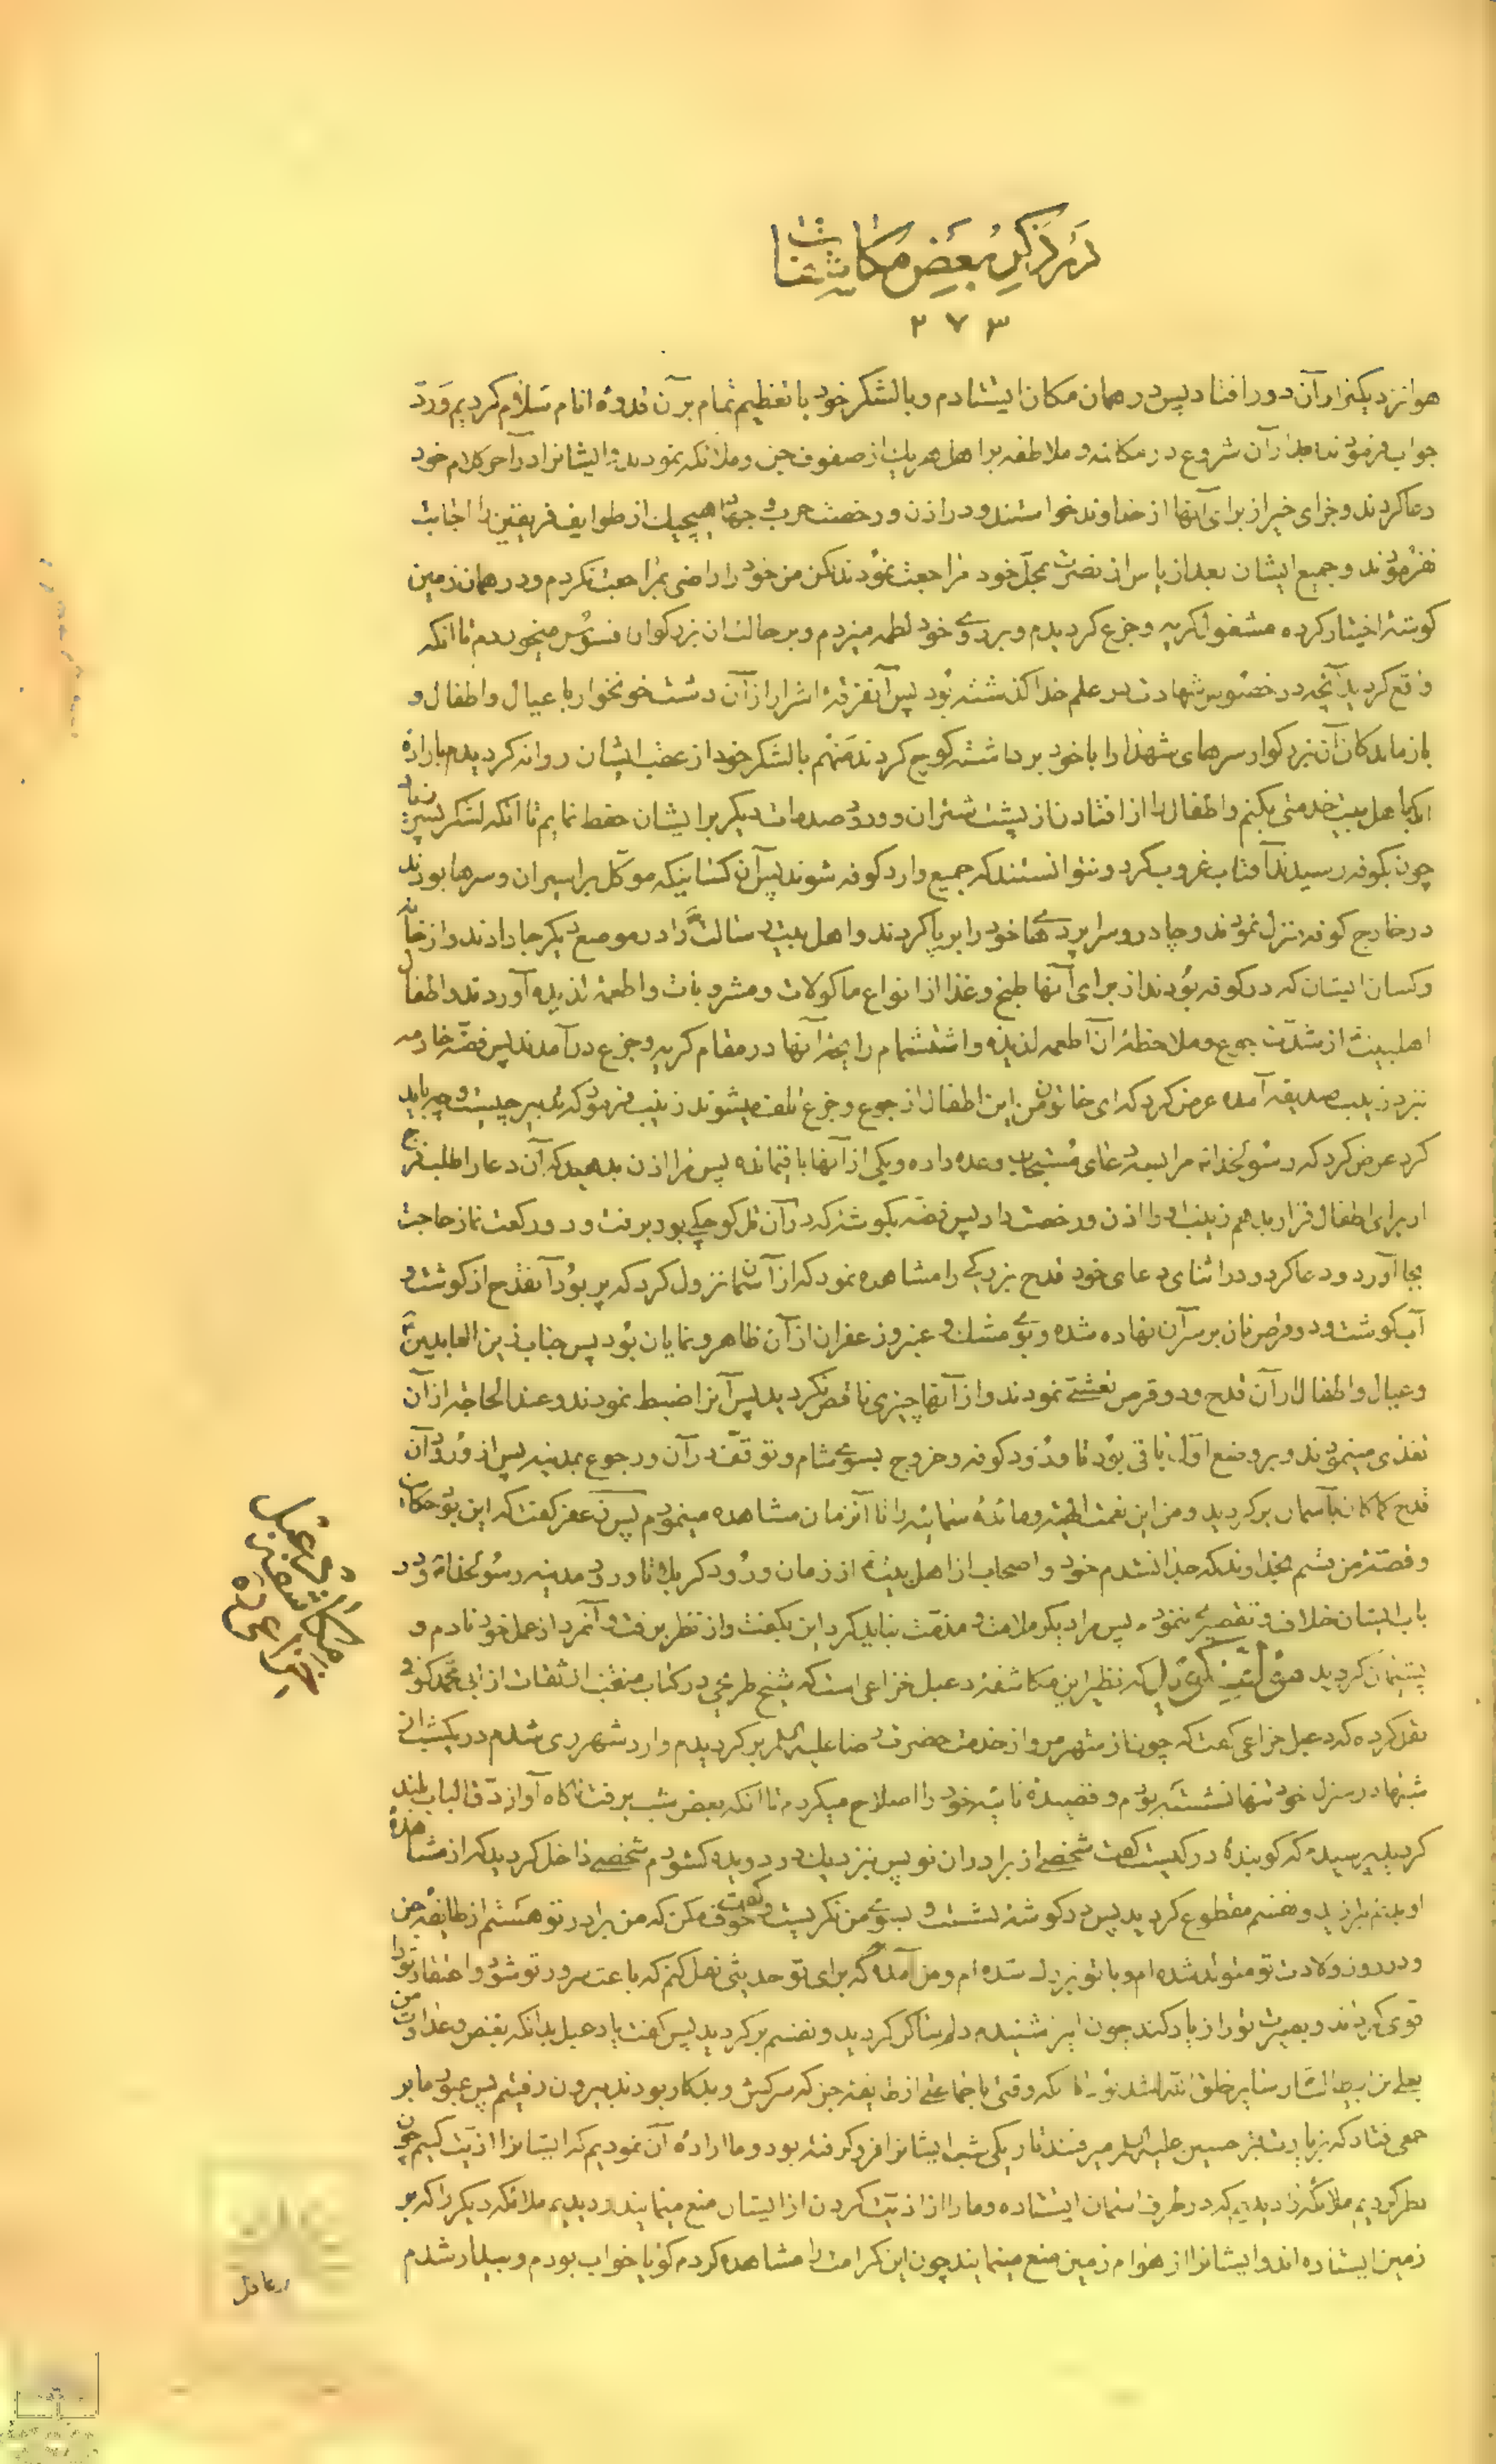 در ذکر بعض مکاشفات
۲۷۳
هوا نزدیکتر از آن دور افتاد پس در همان مکان ایستادم و با لشکر خود با تعظیم تمام بر آن قدوهٔ انام سلام کردیم و ردّ
جواب فرمودند بعد از آن شروع در مکالمه و ملاطفه بر اهل هر یک از صفوف جن و ملائکه نمودند و ایشانرا در آخر کلام خود
دعا کردند و جزای خیر از برای آنها از خداوند خواستند و در اذن و رخصت حرب و جهاد هیچیک از طوایف فریقین را اجابت
نفرمودند و جمیع ایشان بعد از یاس از نصرت بمحلّ خود مراجعت نمودند لکن من خود را راضی بمراجعت نکردم و در همان زمین
کوشهٔ اختیار کرده مشغول کریه و جزع کردیدم و بر روی خود لطمه میزدم و بر حالت ان بزرکوار افسوس میخوردم تا انکه
واقع کردید آنچه در خصوص شهادت در علم خدا کذشته بود پس آنفرقهٔ اشرار از آن دشت خونخوار با عیال و اطفال و
بازماندکان آن بزرکوار سرهای شهدا را با خود برداشته کوچ کردند منهم با لشکر خود از عقب ایشان روانه کردیدم باراده
انکه باهل بیت خدمتی بکنم و اطفال را از افتادن از پشت شتران و ورود صدمات دیکر بر ایشان حفظ نمایم تا انکه لشکر پسر زیاد
چون بکوفه رسیدند آفتاب غروب کرد و نتوانستند که جمیع وارد کوفه شوند پس آن کسانیکه موکّل بر اسیران و سرها بودند
در خارج کوفه منزل نمودند و چادر و سراپرده‌های خود را برپا کردند و اهل بیت رسالت را در موضع دیکر جا دادند و از خانه
و کسان ایشان که در کوفه بودند از برای آنها طبخ و غذا از انواع ماکولات و مشروبات و اطعمهٔ لذیذه آوردند و اطفال
اهلبیت از شدّت جوع و ملاحظهٔ ان اطعمه لذیذه و استشمام رایحه آنها در مقام کریه و جزع درآمدند پس فضّه خادمه
نزد زینب صدیقه آمده عرض کرد که ای خاتون من این اطفال از جوع و جزع تلف میشوند زینب فرمود که تدبیر چیست و چه باید
کرد عرض کرد که رسولخدا مرا بسه دعای مستجاب وعده داده و یکی از آنها باقیمانده پس مرا اذن بدهید که آن دعا را طلب فرج
از برای اطفال قرار بدهم زینب او را اذن و رخصت داد پس فضّه بکوشهٔ که در آن تل کوچکی بود برفت و دو رکعت نماز حاجت
بجا آورد و دعا کرد و در اثنای دعای خود قدح بزرکی را مشاهده نمود که از آسمان نزول کرد که پر بود آنقدح از کوشت و
آب کوشت و دو قرص نان بر سر آن نهاده شده و بوی مشک و عنبر و زعفران از آن ظاهر و نمایان بود پس جناب زین العابدین
و عیال و اطفال از آن قدح و دو قرص تعشّی نمودند و از آنها چیزی ناقص نکردید پس آنرا ضبط نمودند و عند الحاجه از آن
تغذی مینمودند و بر وضع اوّل باقی بود تا ورود کوفه و خروج بسوی شام و توقّف در آن و رجوع بمدینه پس از ورود آن
قدح کماکان بآسمان برکردید و من این نعمت الهیه و مائدهٔ سمائیه را تا آنزمان مشاهده مینمودم پس زعفر کفت که این بود حکایت
و قصّهٔ من قسم بخداوند که جدا نشدم خود و اصحاب از اهل بیت از زمان ورود کربلا تا ورود مدینه رسولخدا و در
باب ایشان خلاف و تقصیری ننمودم پس مرا دیکر ملامت و مذمّت نباید کرد این بکفت و از نظر برفت و آنمرد از عمل خود نادم و
پشیمان کردید که نظیر این مکاشفه دعبل خزاعی است که شیخ طریحی در کتاب منتخب از ثقات از ابی محمد کوفی
نقل کرده که دعبل خزاعی کفت که چون از شهر مرو از خدمت حضرت رضا علیه السلم برکردیدم وارد شهر ری شدم در یکشبی از
شبها در منزل خود تنها نشسته بودم و قصیدهٔ تائیه خود را اصلاح میکردم تا انکه بعض شب برفت ناکاه آواز دقّ الباب بلند
کردید پرسیدم که کوبندهٔ در کیست کفت شخصی از برادران تو پس بنزدیک در دویده کشودم شخصی داخل کردید که از مشاهدهٔ
او بدنم بلرزید و نفسم مقطوع کردید پس در کوشهٔ نشست و بسوی من نکریست و کفت خوف مکن که من برادر تو هستم از طایفهٔ جن
و در روز ولادت تو متولّد شده‌ام و با تو بزرک شده‌ام و من آمده‌ام که برای تو حدیثی نقل کنم که باعث سرور تو شود و اعتقاد تو را
قوی کرداند و بصیرت تو را زیاد کند چون اینرا شنیدم دلم ساکن کردید و نفسم برکردید پس کفت یا دعبل بدانکه بغض و عداوت من
بعلی بن ابیطالب از سایر خلق اشدّ بود تا انکه وقتی با جماعتی از طایفه جن که سرکش و بدکار بودند بیرون رفتیم پس عبور ما بر
جمعی فتاد که بزیارت قبر حسین علیه السلم میرفتند تاریکی شب ایشانرا فرو کرفته بود و ما ارادهٔ آن نمودیم که ایشانرا اذیّت کنیم چون
نظر کردیم ملائکه را دیدیم که در طرف اسمان ایستاده و ما را از اذیّت کردن از ایشان منع مینمایند و دیدیم ملائکه دیکر را که بر
زمین ایستاده‌اند و ایشانرا از هوام زمین منع مینمایند چون این کرامت را مشاهده کردم کویا خواب بودم و بیدار شدم